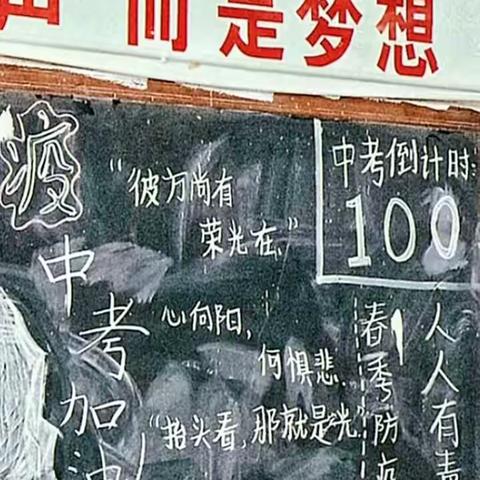 而是梦想
疫
中考加油
"彼方尚有
荣光在"
心向阳,
何惧悲
"抬头看,那就是光
中考倒计时:
100
春季防疫
人人有责